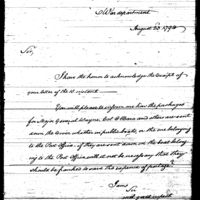 War department
August 20 1794
Sir,
I have the honor to acknowledge the receipt of
your letter of the 15 instant.
You will please to inform me how the packages
for Major General Wayne, Col. O'Hara and others are sent
down the River whether in public boats, or the one belonging
to the Post Office. if they are sent down in the boat belong
ing to the Post Office will it not be necessary that they
should be franked to save the expence of postage?
I am
Sir
with great respect